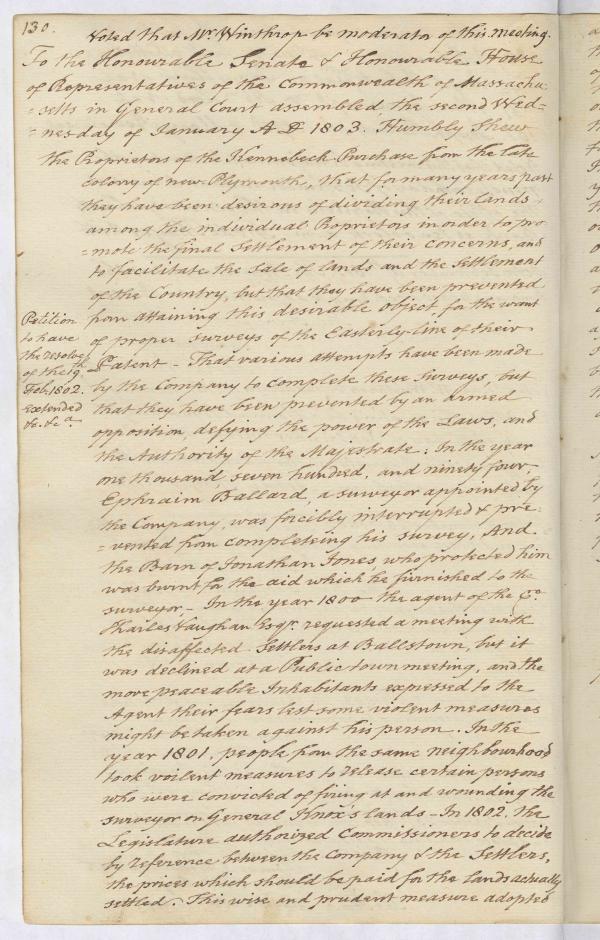 130.
Voted that Mr. Winthrop be moderator of this meeting.
To the Honourable Senate & Honourable House
of Representatives of the Commonwealth of Massachu
=setts in General Court assembled, the second Wed=
=nesday of January A D 1803. Humbly Shew
the Proprietors of the Kennebeck Purchase from the late
colony of new Plymouth, that for many years past
they have been desirous of dividing their lands
among the individual Proprietors in order to pro
=mote the final Settlement of their concerns, and
to facilitate the Sale of lands and the Settlement
of the Country, but that they have been prevented
from attaining this desirable object for the want
of proper surveys of the Easterly line of their
Patent - That various attempts have been made
by the Company to complete these Surveys, but
that they have been prevented by an armed
opposition, defying the power of the Laws, and
the Authority of the Majestrate: In the year
one thousand, seven hundred, and ninety four,
Ephraim Ballard, a surveyor appointed by
the Company, was forcibly interrupted & pre=
=vented from completeing his survey, And
the Barn of Jonathan Jones, who protected him
was burnt for the aid which he furnished to the
surveyor - In the year 1800 the agent of the Co.
Charles Vaughan Esqr. requested a meeting with
the disaffected Settlers at Ballstown, but it
was declined at a Public town meeting, and the
more peaceable Inhabitants expressed to the
Agent their fears lest some violent measures
might be taken against his person. In the
year 1801, people from the same neighbourhood
took voilent measures to release certain persons
who were convicted of firing at and wounding the
surveyor on General Knox's lands - In 1802, the
Legislature authorized Commissioners to decide
by reference between the Company & the Settlers,
the prices which should be paid for the lands actually
settled. This wise and prudent measure adopted
Petition
to have
the resolve
of the 19th
Feb. 1802.
extended
&c. &c a